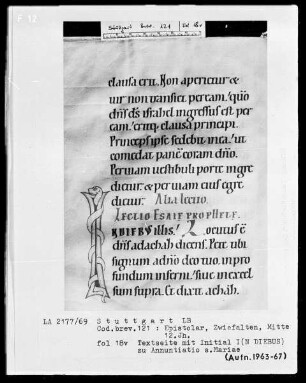 F 12
Stuttgart Brev. 121 fol. 18v
clausa erit. Non aperietur &
uir non transiet per eam. quō
dn̄s d̄s israhel ingressus est per
eam. eritq; clausa principi.
Princeps ipse sedebit in ea. ut
comedat panē coram dn̄o.
Per uiam uestibuli porte ingre
dietur. & per uiam eius egre
dietur. Alia lectio.
LECTIO ESAIE PROPHETE.
IN DIEBVS illis. Locutus ē
dn̄s ad achab dicens. Pete tibi
signum a dn̄o deo tuo. in pro
fundum inferni. siue in excel
sum supra. Et dixit achab.
LA 2177/69 Stuttgart LB
Cod.brev.121: Epistolar, Zwiefalten, Mitte
12.Jh.
fol 18v Textseite mit Initial I(N DIEBUS)
zu Annuntiatio s.Mariae
(Aufn.1963-67)